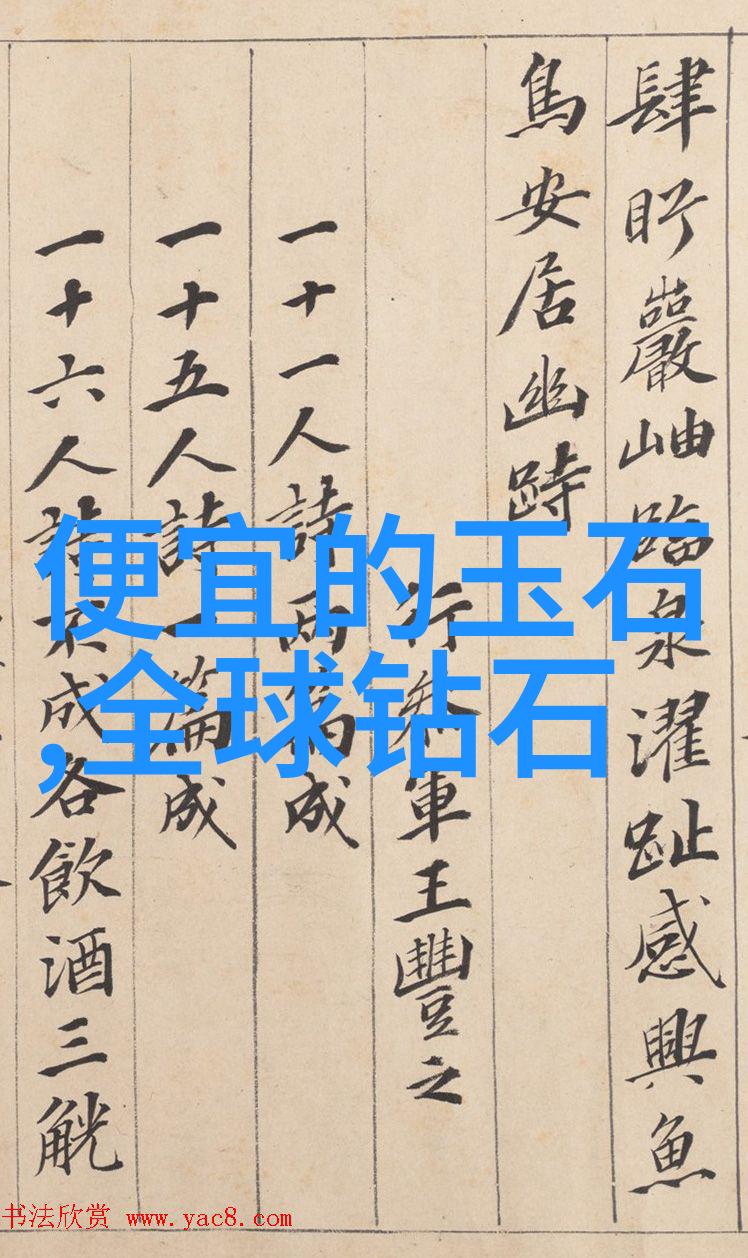 肆盻巖岫臨泉濯趾感興魚
鳥安居幽跱
行參軍王豐之
一十一人詩兩篇成
一十五人詩一篇成
一十六人詩不成各飲酒三觥
便宜的玉石
,全球钻石
书法欣赏 www.yac8.com